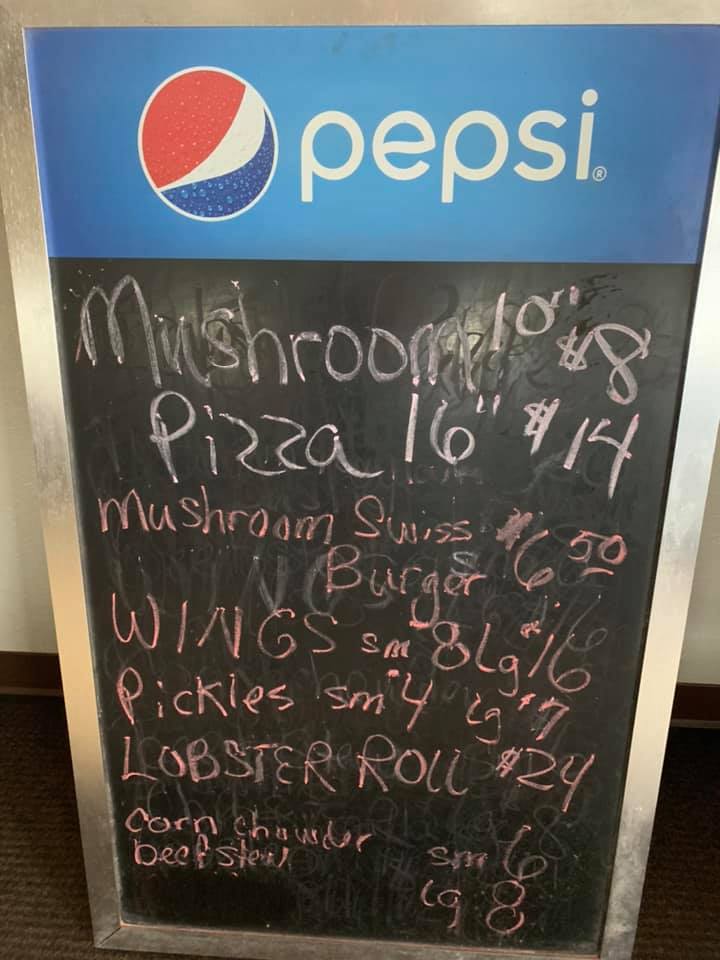 pepsi®
Mushroom 10" $8
Pizza 16" $14
Mushroom Swiss $6 50
Burger
WINGS sm $8 Lg $16
Pickles sm $4 Lg $7
LOBSTER ROLL $24
corn chowder
beef stew sm 6
Lg 8